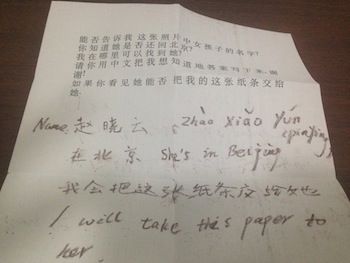 能否告诉我这张照片中女孩子的名字?
你知道她是否还回北京?
我在哪里可以找到她?
请你用中文把我想知道地答案写下来,谢谢!
如果你看见她能否把我的这张纸条交给她.
Name 赵晓云 Zhào Xiǎo Yún
(pinyin)
在北京 She's in Beijing
我会把这张纸条交给她
I will take this paper to
her